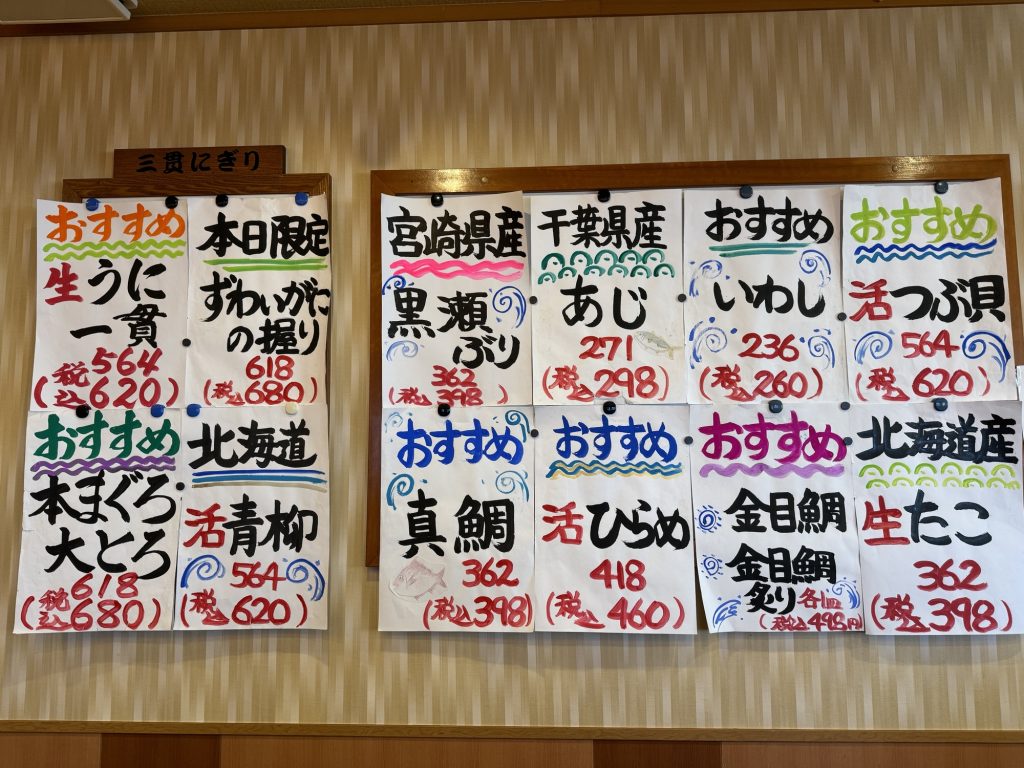 三貫にぎり
おすすめ
生うに
一貫
564
(税込620)
本日限定
ずわいがに
の握り
618
(税込680)
宮崎県産
黒瀬
ぶり
362
(税込398)
千葉県産
あじ
271
(税込298)
おすすめ
いわし
236
(税込260)
おすすめ
活つぶ貝
564
(税込620)
おすすめ
本まぐろ
大とろ
618
(税込680)
北海道
活青柳
564
(税込620)
おすすめ
真鯛
362
(税込398)
おすすめ
活ひらめ
418
(税込460)
おすすめ
金目鯛
金目鯛
炙り各1皿
(税込498円)
北海道産
生たこ
362
(税込398)